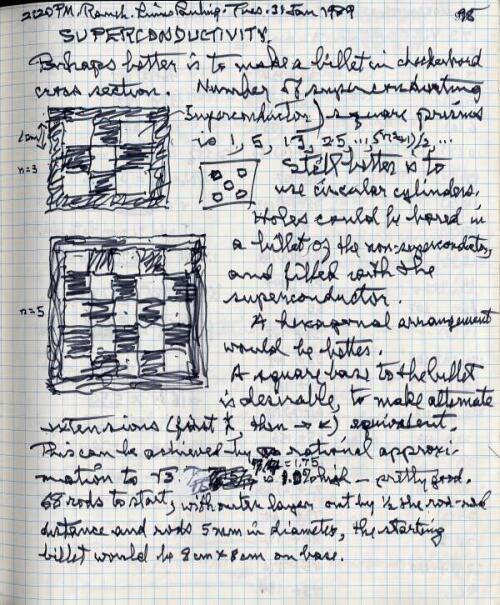 2:20 PM. Ranch. Linus Pauling. Tues. 31 Jan 1989 95
SUPERCONDUCTIVITY.
Perhaps better is to make a billet in checkerboard
cross section. Number of superconducting
Superconductor) square prisms
2cm
is 1, 5, 13, 25, ..., (n²+1)/2, ...
n=3
Still better is to
use circular cylinders.
Holes could be bored in
a billet of the non-superconductor,
and filled with the
superconductor.
n=5
A hexagonal arrangement
would be better.
A square base to the billet
is desirable, to make alternate
extensions (first, then →) equivalent.
This can be achieved by rational approxi-
mation to √3. 7/4 = 1.75
is 1.0% high – pretty good.
68 rods to start, with outer layer out by ½ the rod-rod
distance and rods 5 mm in diameter, the starting
billet would be 8cm x 8cm on base.